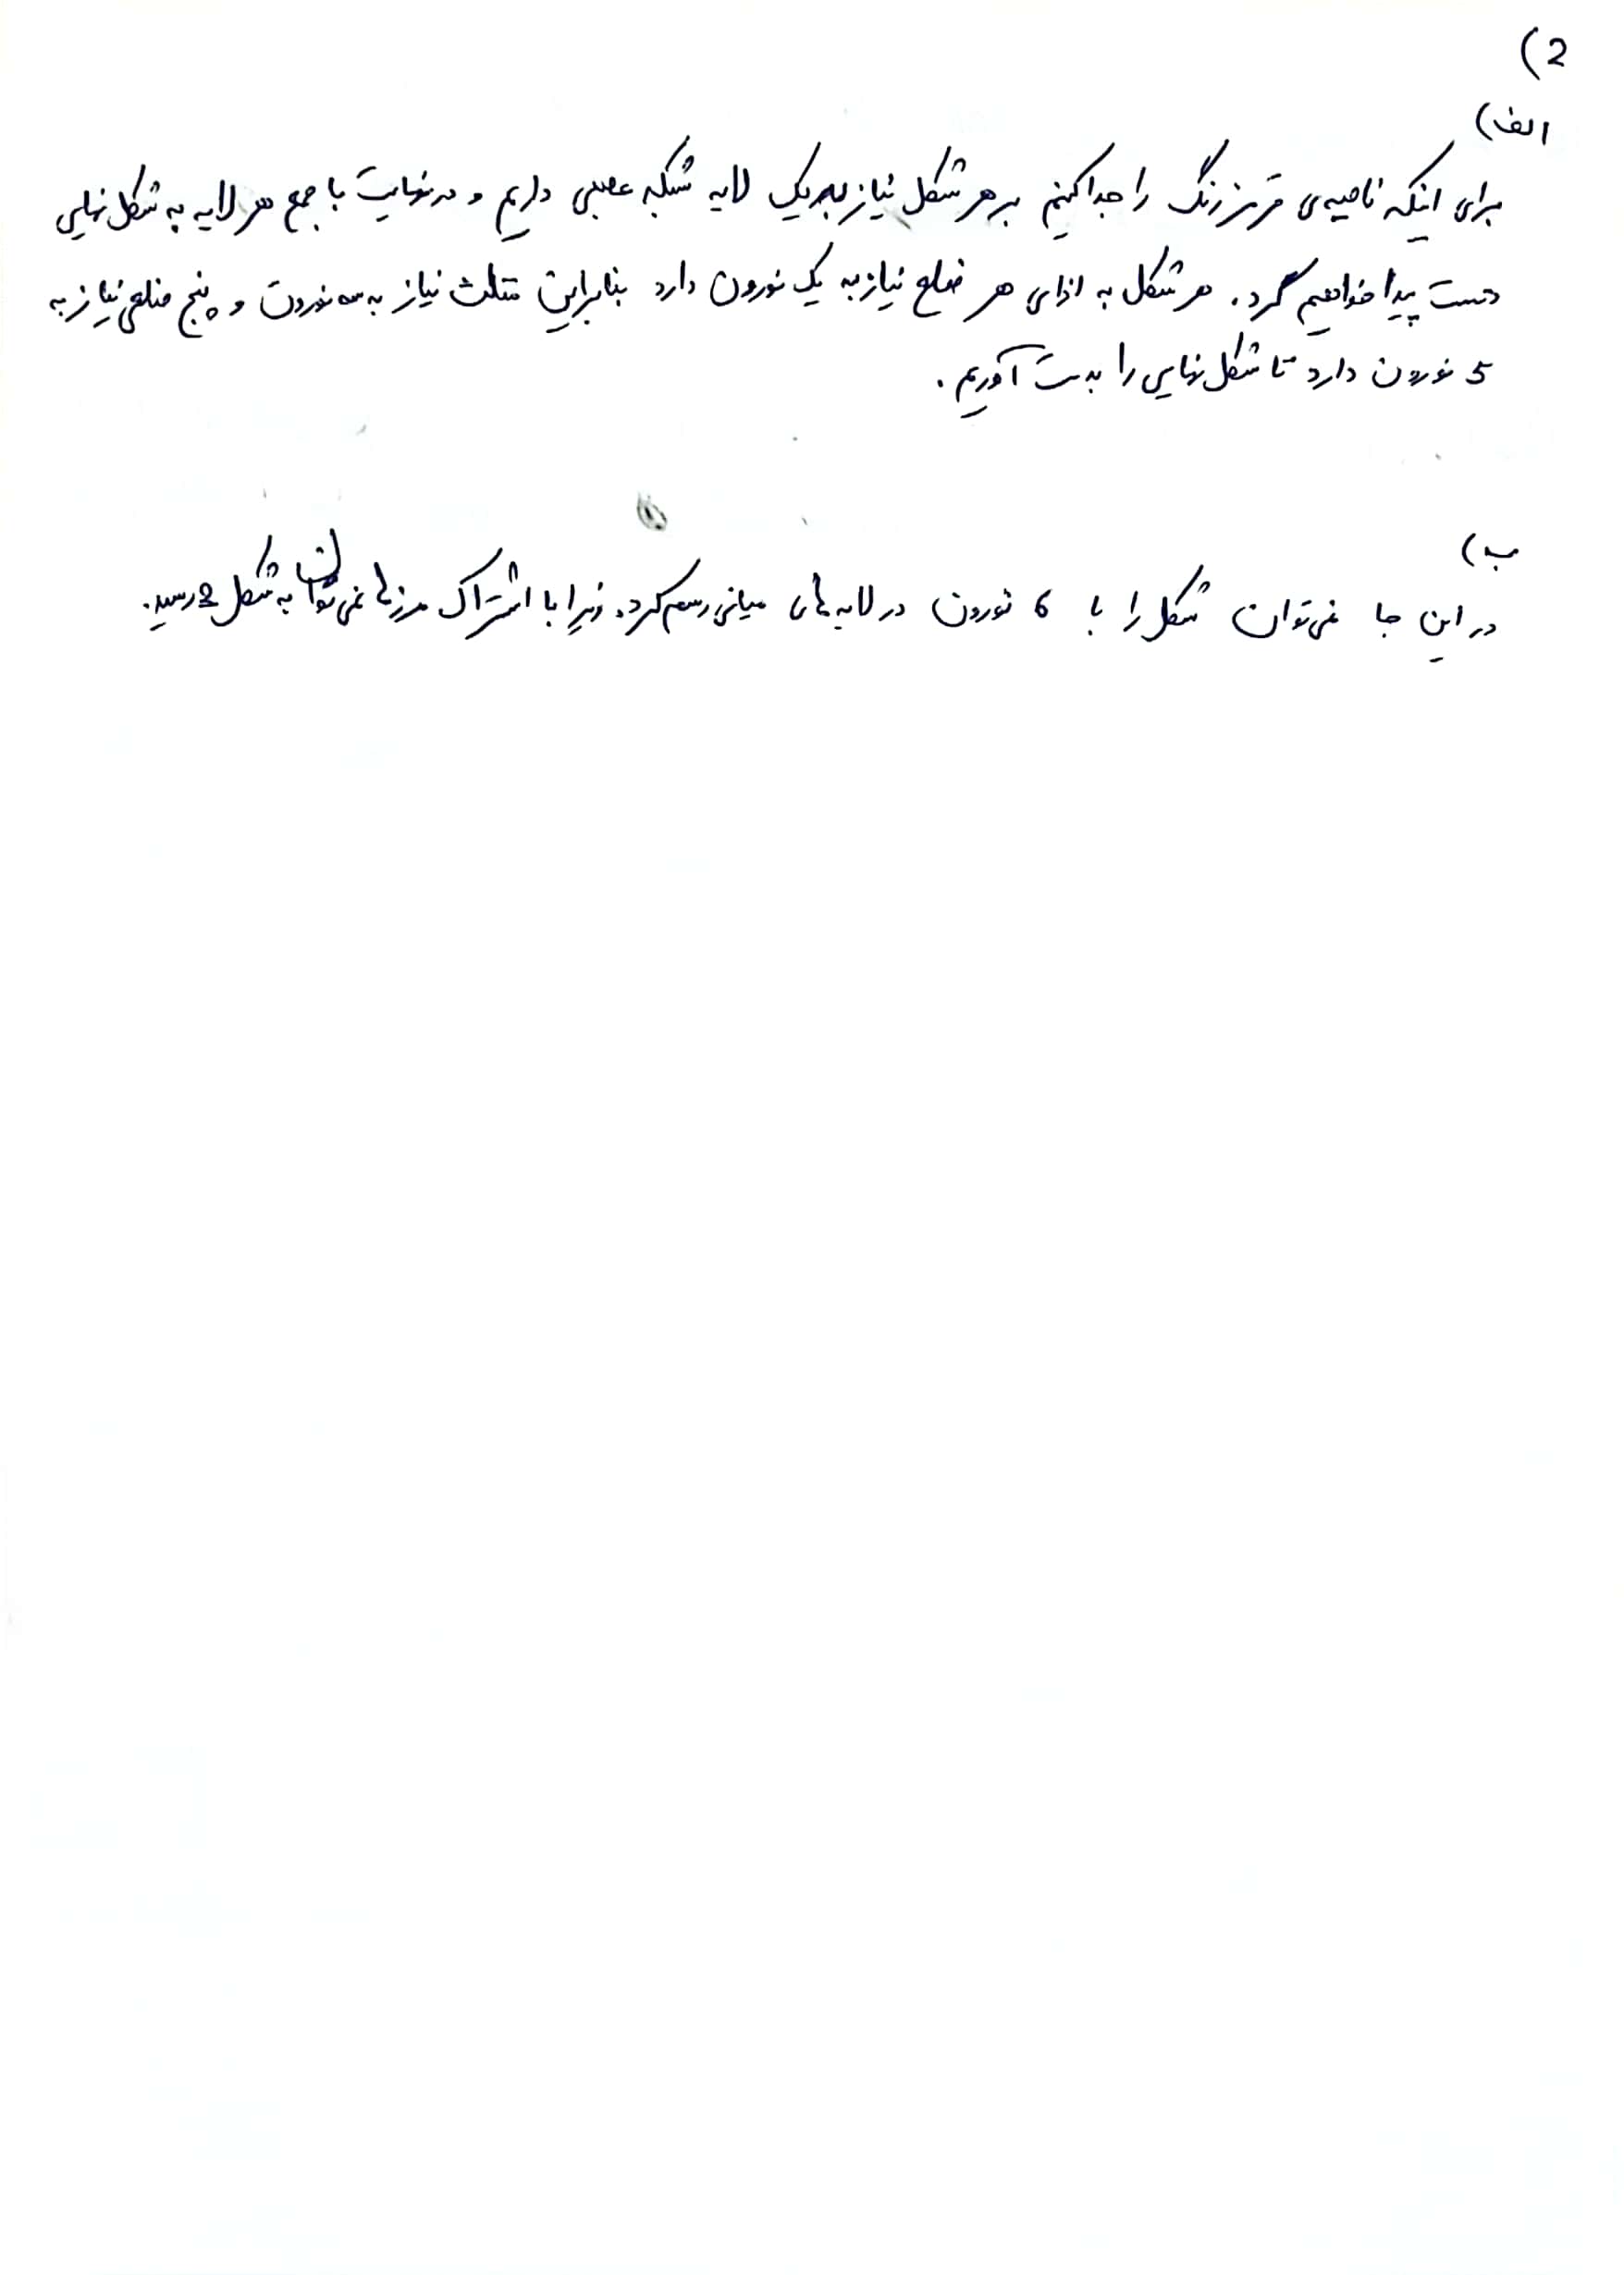 2)
الف)
برای اینکه ناحیه‌ی قرمز رنگ را جدا کنیم بر هر شکل نیاز به یک لایه شبکه عصبی داریم و در نهایت با جمع هر لایه به شکل نهایی
دست پیدا خواهیم کرد. هر شکل به ازای هر ضلع نیاز به یک نورون دارد بنابراین مثلث نیاز به سه نورون و پنج ضلعی نیاز به
5 نورون دارد تا شکل نهایی را بدست آوریم.
ب)
در این جا نمی‌توان شکل را با 6 نورون در لایه‌های میانی رسم کرد. زیرا با اشتراک مرزها نمی‌توان به شکل 2 رسید.